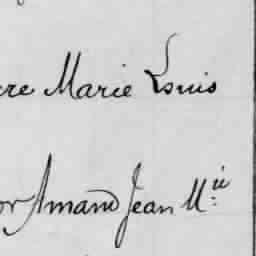 re Marie Louis
or Amand Jean M.ie